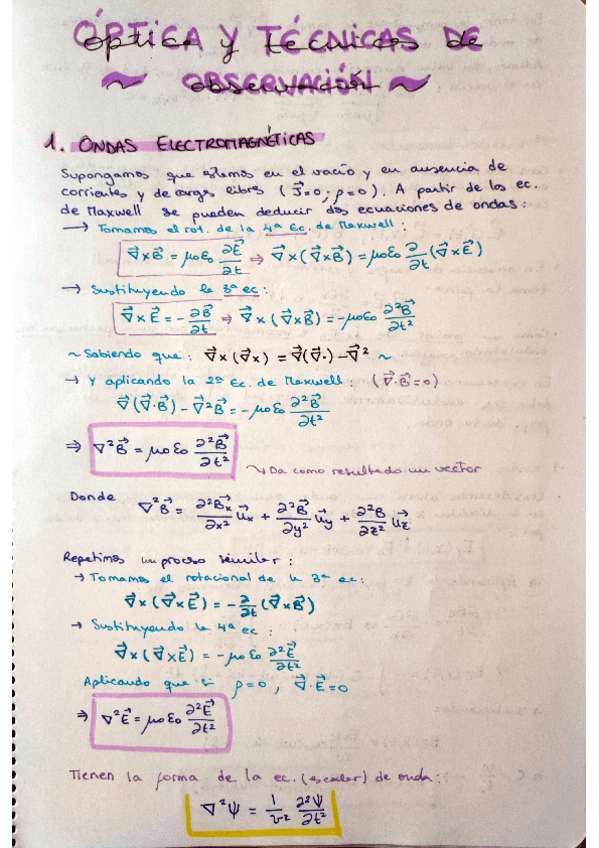 ÓPTICA Y TÉCNICAS DE
~ OBSERVACIÓN ~
1. ONDAS ELECTROMAGNÉTICAS
Supongamos que estemos en el vacío y en ausencia de
corrientes y de cargas libres (J⃗=0; ρ=0). A partir de las ec.
de Maxwell se pueden deducir dos ecuaciones de ondas:
→ Tomamos el rot. de la 4ª Ec. de Maxwell:
∇⃗×B⃗ = μ₀ε₀ ∂E⃗/∂t ⇒ ∇⃗×(∇⃗×B⃗) = μ₀ε₀ ∂/∂t (∇⃗×E⃗)
→ Sustituyendo la 3ª ec:
∇⃗×E⃗ = -∂B⃗/∂t ⇒ ∇⃗×(∇⃗×B⃗) = -μ₀ε₀ ∂²B⃗/∂t²
~ Sabiendo que: ∇⃗×(∇⃗×) = ∇⃗(∇⃗·) - ∇⃗² ~
→ Y aplicando la 2ª Ec. de Maxwell: (∇⃗·B⃗=0)
∇⃗(∇⃗·B⃗) - ∇⃗²B⃗ = -μ₀ε₀ ∂²B⃗/∂t²
⇒ ∇²B⃗ = μ₀ε₀ ∂²B⃗/∂t²
↳ Da como resultado un vector
Donde ∇²B⃗ = ∂²B⃗x/∂x² u⃗x + ∂²B⃗/∂y² u⃗y + ∂²B/∂z² u⃗z
Repetimos un proceso similar:
→ Tomamos el rotacional de la 3ª ec:
∇⃗×(∇⃗×E⃗) = -∂/∂t (∇⃗×B⃗)
→ Sustituyendo la 4ª ec:
∇⃗×(∇⃗×E⃗) = -μ₀ε₀ ∂²E⃗/∂t²
Aplicando que ρ=0, ∇⃗·E⃗=0
⇒ ∇²E⃗ = μ₀ε₀ ∂²E⃗/∂t²
Tienen la forma de la ec. (escalar) de onda:
∇²Ψ = 1/v² ∂²Ψ/∂t²